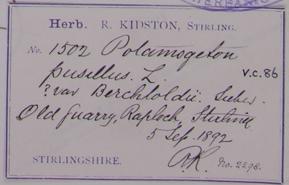 Herb. R. KIDSTON, STIRLING.
No. 1502 Potamogeton
pusillus. L. V.C. 86
? var Berchtoldii.
Old Quarry, Raploch, Stirling
5 Sep. 1892
RK No. 2296.
STIRLINGSHIRE.